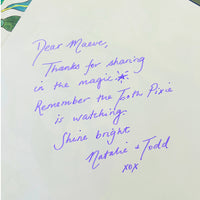 Dear Maeve,
Thanks for sharing
in the magic
Remember the Tooth Pixie
is watching.
Shine bright
Natalie + Todd
xox